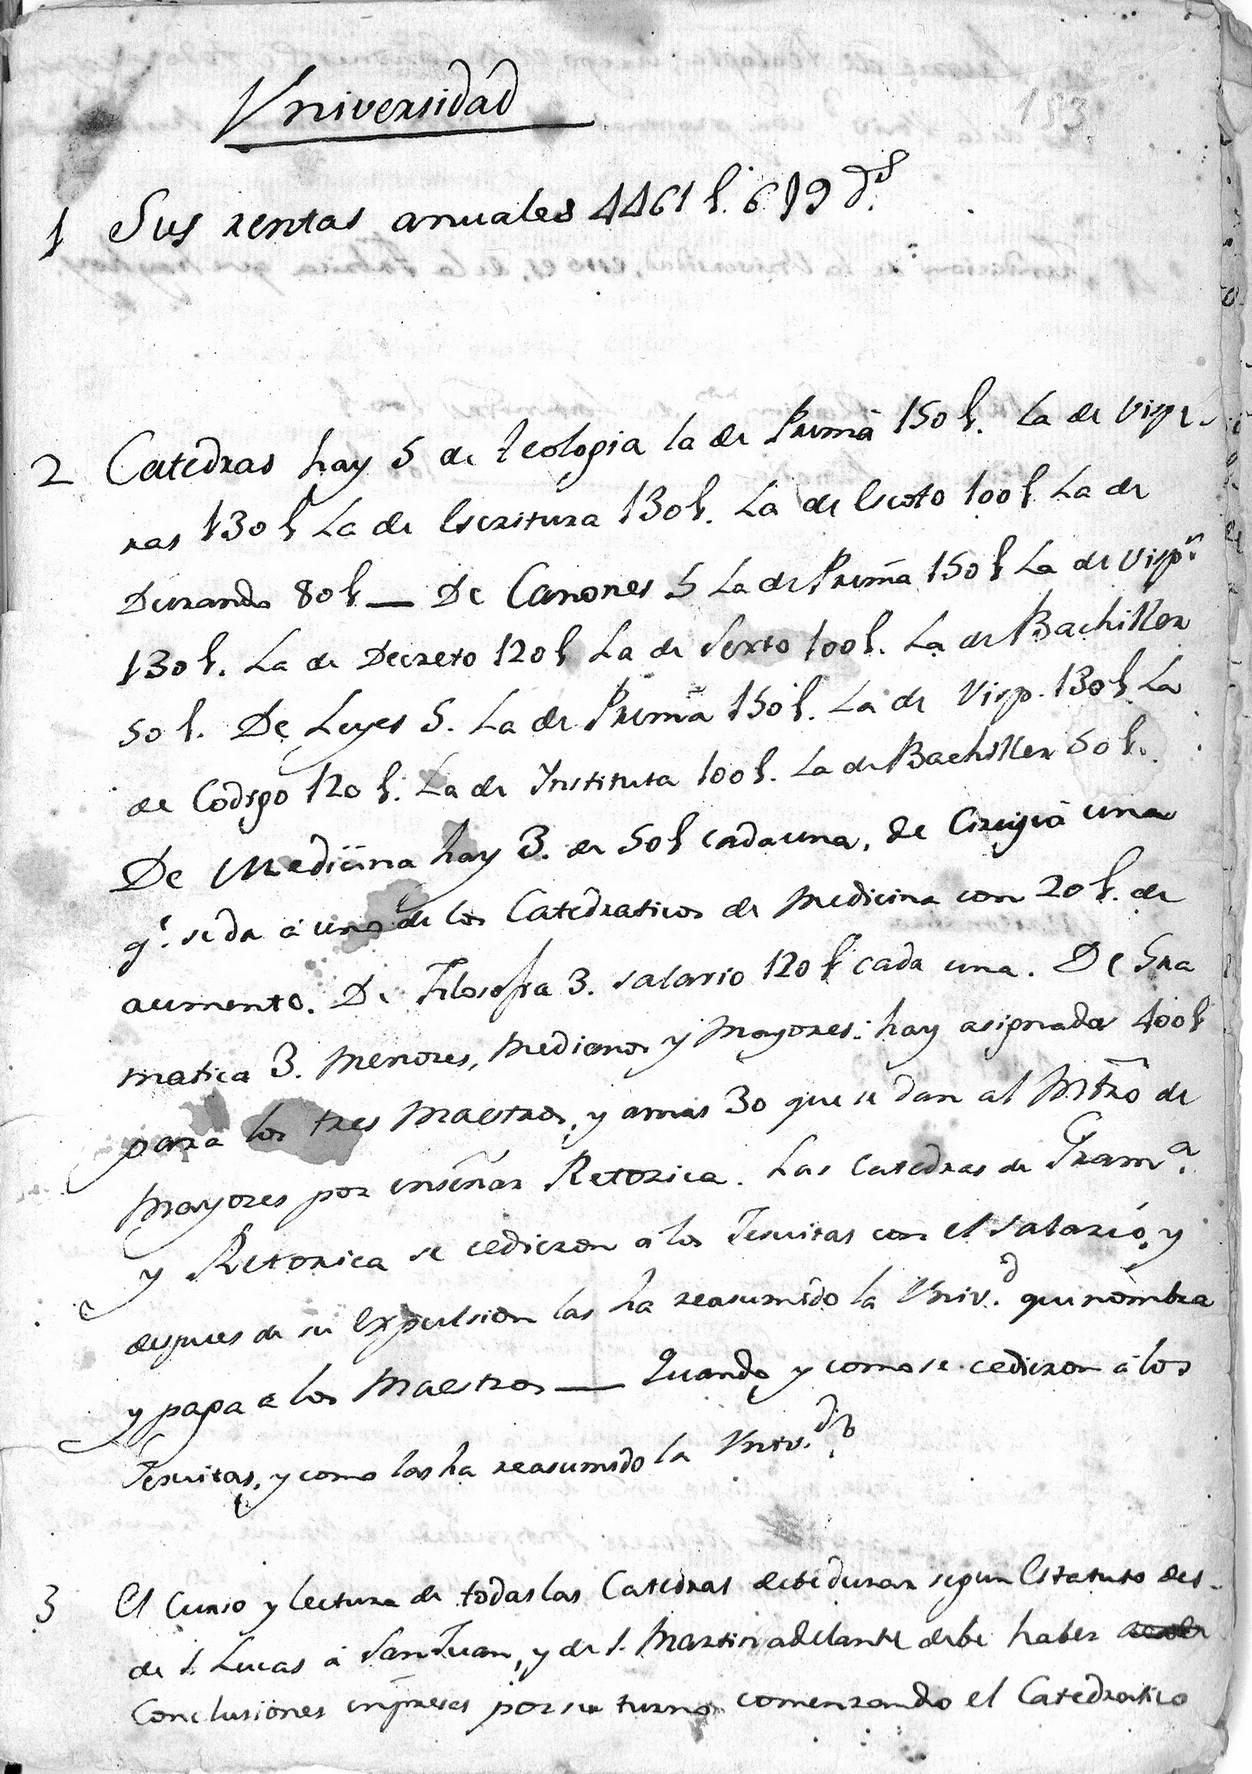 Vniversidad
193
1 Sus rentas anuales 4461 l. 6 s 9 d.s
2 Catedras hay 5 de Teologia la de Prima 150 l. La de Visp-
ras 130 l La de Escritura 130 l. La de Escoto 100 l La de
Durando 80 l — De Canones 5 La de Prima 150 l La de Visp.s
130 l. La de Decreto 120 l La de Sexto 100 l. La de Bachiller
50 l. De Leyes 5. La de Prima 150 l. La de Visp. 130 l La
de Codigo 120 l. La de Instituta 100 l. La de Bachiller 50 l.
De Medicina hay 3. de 50 l cada una, de Cirugia una
q.e se da á uno de los Catedraticos de Medicina con 20 l. de
aumento. De Filosofia 3. salario 120 l cada una. De Gra
matica 3. Menores, Medianos y Mayores: hay asignadas 400 l
para los tres Maestros, y amas 30 que se dan al Mtro de
Mayores por enseñar Retorica. Las Catedras de Gram.a
y Retorica se cedieron a los Jesuitas con el salario, y
despues de su expulsion las ha reasumido la Vniv.d que nombra
y paga a los Maestros — Quando y como se cedieron á los
Jesuitas, y como las ha reasumido la Vniv.d?
3 El Curso y lectura de todas las Catedras debe durar segun Estatuto des-
de S. Lucas á San Juan, y de S. Martin adelante debe haber
Conclusiones impresas por su turno comenzando el Catedratico